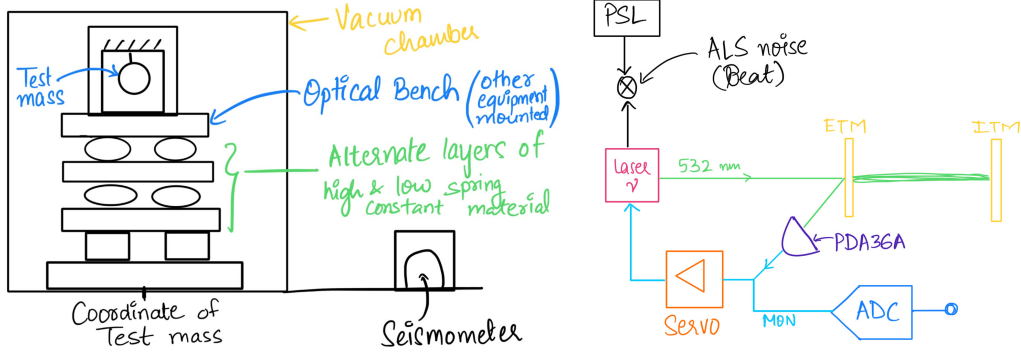 Vacuum
chamber
Test
mass
Optical Bench (other
equipment
mounted)
Alternate layers of
high & low spring
constant material
Coordinate of
Test mass
Seismometer
PSL
ALS noise
(Beat)
Laser
ν
532 nm
ETM
ITM
PDA36A
Servo
MON
ADC